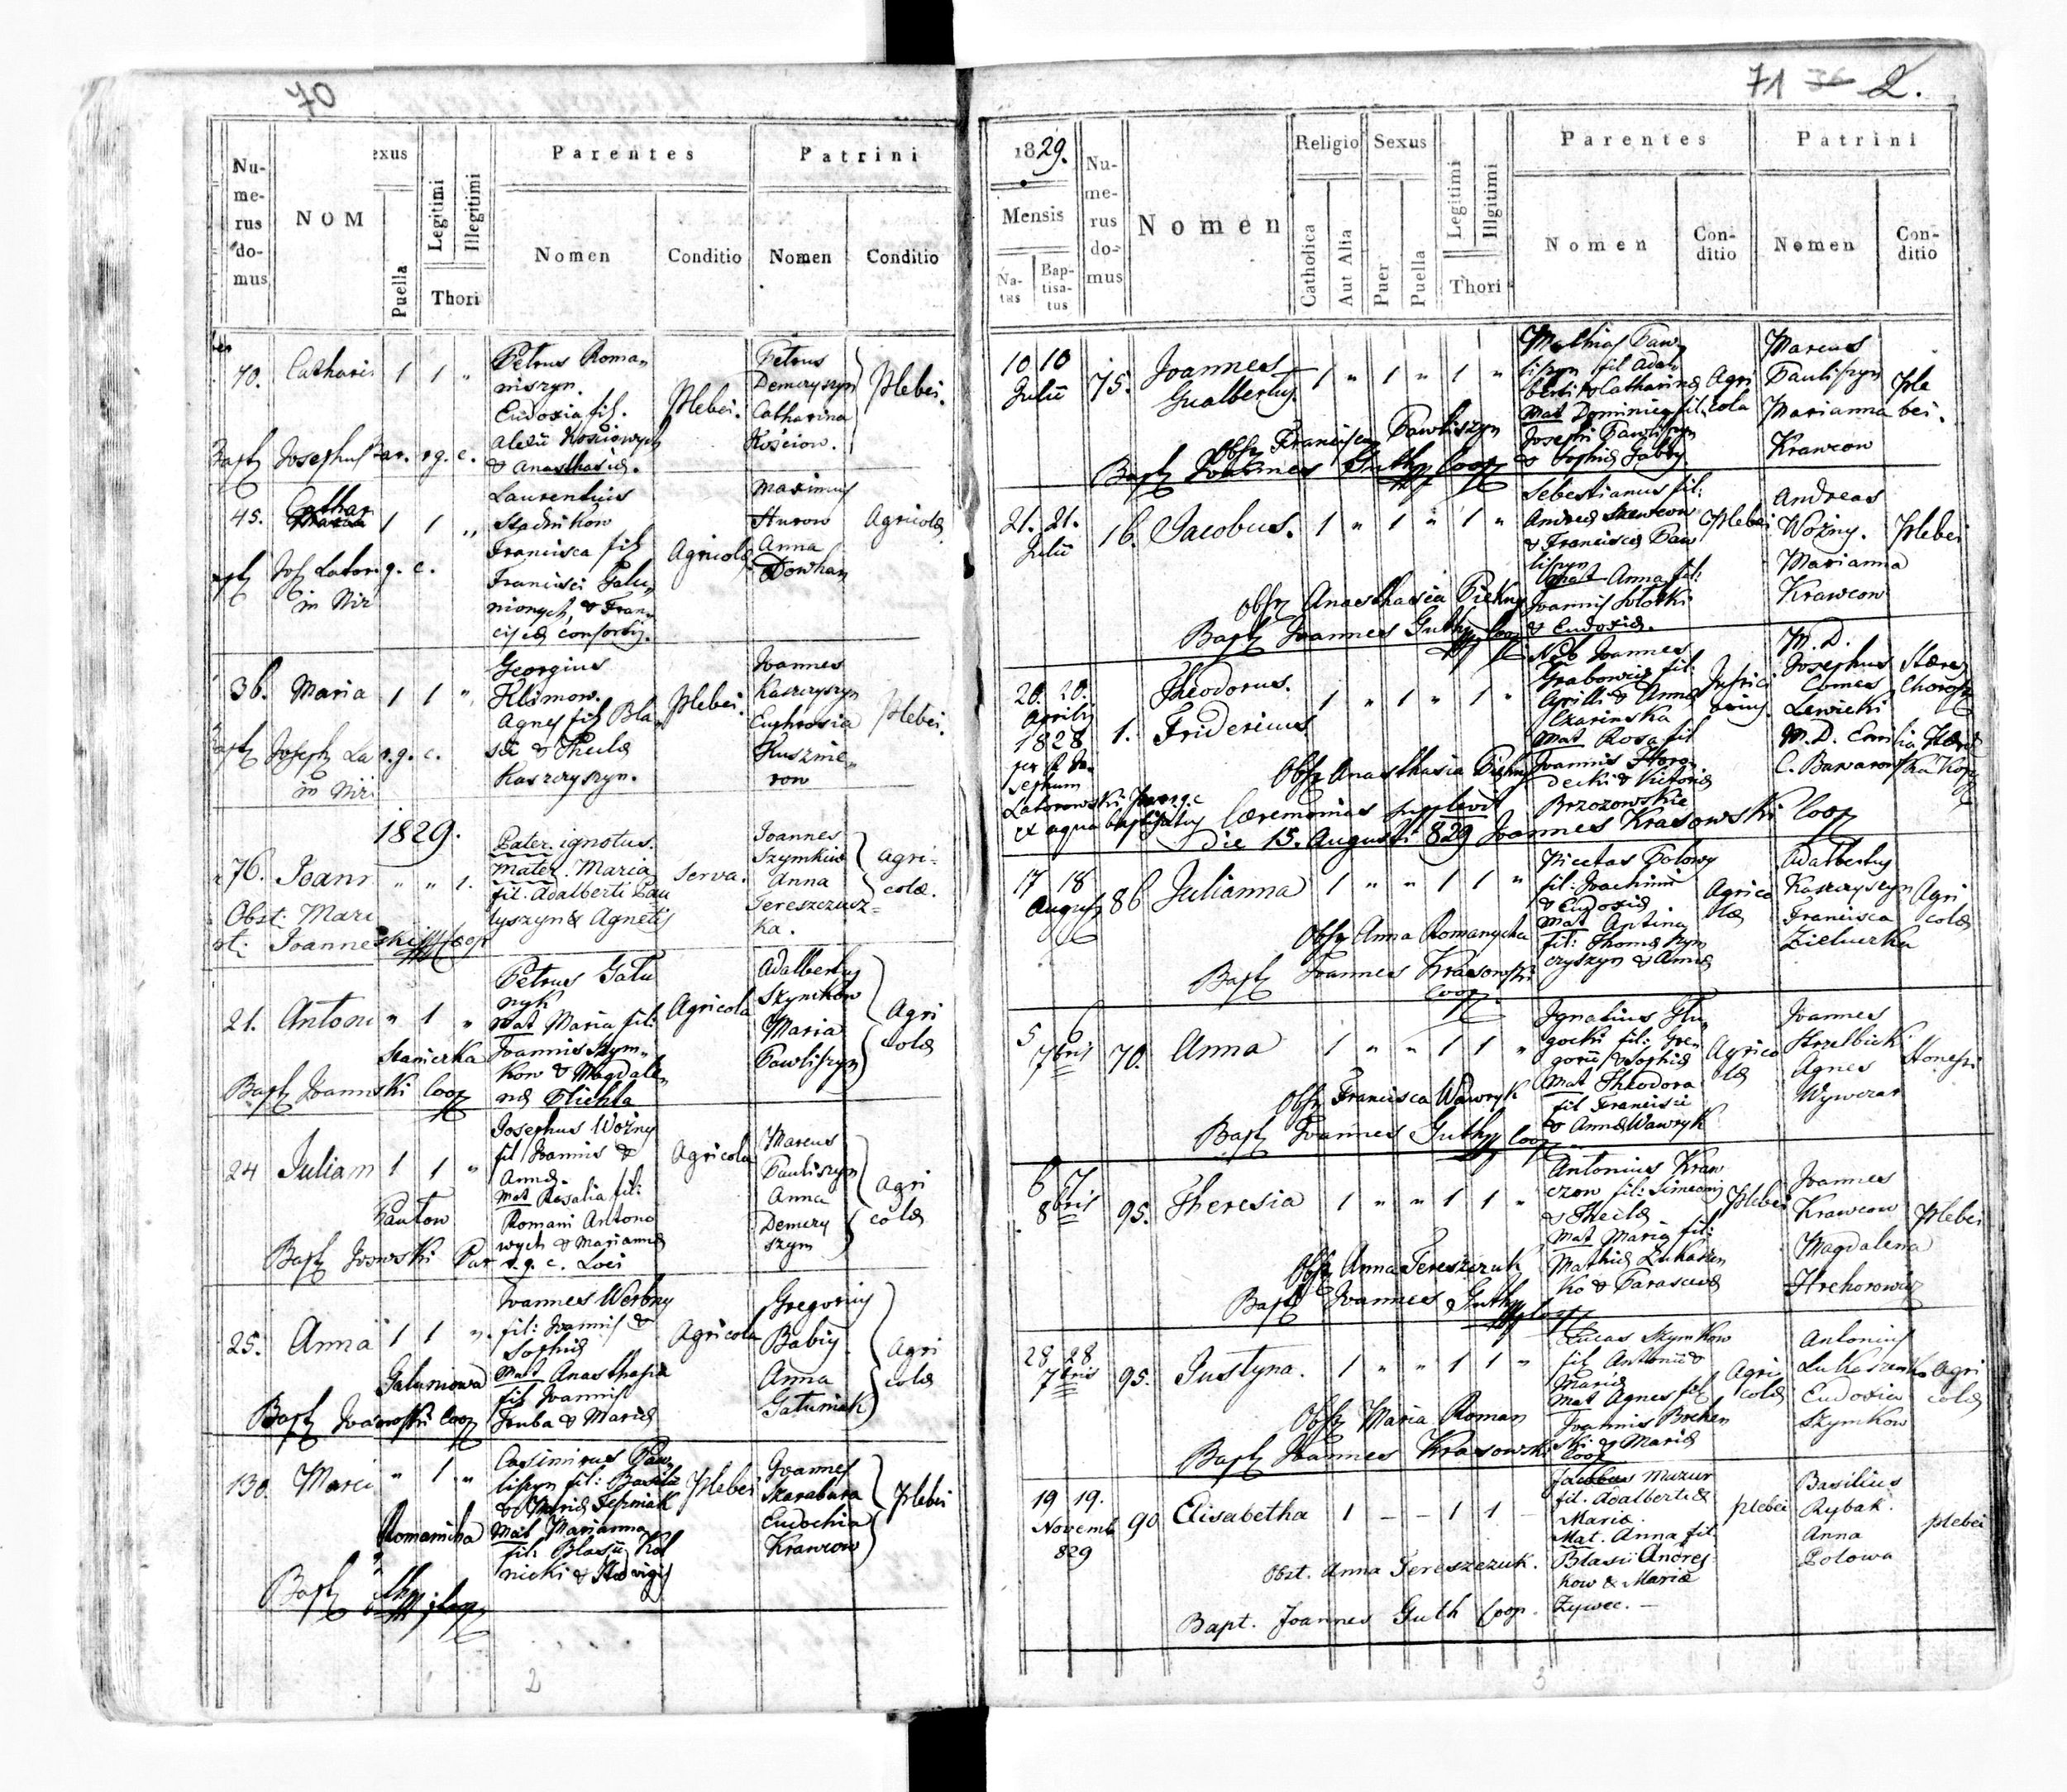 70
Nu-
me-
rus
do-
mus
NOM
exus
Puella
Legitimi
Illegitimi
Thori
Parentes
Nomen
Conditio
Patrini
Nomen
Conditio
40. Cathari 1 1 "
Petrus Roma-
niszyn.
Eudoxia fil.
Alexii Kościowych
& Anasthasiæ.
Plebei.
Petrus
Demczyszyn
Catharina
Kościow.
Plebei.
Bapt Josephus Par. r.g. c.
45. Cathar 1 1 "
Laurentius
Stadnikow
Francisca fil
Francisci Galu-
nionych, & Fran-
ciscæ consortis.
Agricolæ
Maximus
Hurow
Anna
Dowhan
Agricolæ
Jos Lator g. c.
in Nir
36. Maria 1 1 "
Georgius
Klimow.
Agnes fil Bla-
sii & Theclæ
Kaszczyszyn.
Plebei.
Joannes
Kaszczyszyn
Euphrosia
Kusznie-
row
Plebei.
Bapt Joseph La r.g. c.
in Nir
1829.
76. Joann " " 1.
Pater ignotus.
Mater. Maria
fil. Adalberti Pau
lyszyn & Agnetis
Serva.
Joannes
Szymkiw
Anna
Tereszczusz-
ka.
Agri-
colæ.
Obst: Mari
Joannes ski Coop
21. Antoni " 1 "
Petrus Gału
nyk
Mat Maria fil:
Joannis Szym-
kow & Magdale-
næ Plichta
Agricola
Adalbertus
Szymkow
Maria
Pawliszyn
Agri
colæ
Stasierka
Bapt Joann ski Coop
24 Juliann 1 1 "
Josephus Woźny
fil Joannis &
Annæ.
Mat Rosalia fil:
Romani Antono
wych & Mariannæ
Agricola
Marcus
Pauliszyn
Anna
Demczy
szyn
Agri
colæ
Pautow
Bapt Jo owski Par r.g. c. Loci
25. Anna 1 1 "
Joannes Werbny
fil: Joannis &
Sophiæ
Mat Anasthasia
fil Joannis
Truba & Mariæ
Agricola
Gregorius
Babiy
Anna
Gałuniak
Agri
colæ
Galuniowa
Bapt Joa owski Coop
130. Marci " 1 "
Casimirus Paw-
liszyn fil: Basilii
& Mariæ Tepniak
Mat Marianna
fil: Blasii Kol
nicki & Hedvigis
Plebei
Joannes
Skarabura
Eudochia
Krawcow
Plebei
Romanicha
Bapt thy Coop
2
71 36 2.
1829.
Mensis
Na-
tus
Bap-
tisa-
tus
Nu-
me-
rus
do-
mus
Nomen
Religio
Catholica
Aut Alia
Sexus
Puer
Puella
Legitimi
Illgitimi
Thori
Parentes
Nomen
Con-
ditio
Patrini
Nomen
Con-
ditio
10 10
Julii
75. Joannes
Gualbertus
1 " 1 " 1 "
Mathias Paw-
liszyn fil Adal-
berti & Catharinæ
Mat Dominica fil:
Josephi Pawliszyn
& Sophiæ Jabby
Agri
cola
Marcus
Pauliszyn
Marianna
Krawcow
Ple
bei.
Obst Francisca Pawliszyn
Bapt Joannes Guthy Coop
21. 21.
Julii
16. Jacobus. 1 " 1 " 1 "
Sebestianus fil:
Andreæ Szewcow
& Franciscæ Paw
liszyn
Mat Anna fil:
Joannis Slotki
& Eudoxiæ.
Plebei
Andreas
Woźny.
Marianna
Krawcow
Plebei
Obst Anasthasia Piekny
Bapt Joannes Guthy Coop
20. 20.
Aprilis
1828
per R Jo-
sephum
Latorowski Par r.g.c
ex aqua baptisatus
1. Theodorus.
Fridericus
1 " 1 " 1 "
Nob Joannes
Grabowicz fil:
Cyrilli & Annæ
Czarinska
Mat Rosa fil
Joannis Horo-
decki & Victoriæ
Brzozowskie
M. D.
Josephus
Comes
Lewicki
M. D. Emilia
C. Baworowska
Obst Anasthasia Piekny
Cæremonias supplevit
die 15. Augusti 829 Joannes Krasowski Coop
17 18
Augusti
86 Julianna 1 " " 1 1 "
Nicetas Polowy
fil: Joachimi
& Eudoxiæ
Mat Antina
fil: Thomæ Ryn
czyszyn & Annæ
Agrico
læ
Adalbertus
Kaszczyszyn
Francisca
Zielucrka
Agri
colæ
Obst Anna Romanycha
Bapt Joannes Krasowski
Coop
5 6
7bris
70. Anna 1 " " 1 1 "
Ignatius Hu-
gocki fil: Gre-
gorii & Sophiæ
Mat Theodora
fil Francisci
& Annæ Wawryk
Agrico
læ
Joannes
Strzelbicki
Agnes
Wywczar
Honesti
Obst Francisca Wawryk
Bapt Joannes Guthy Coop
6 7
8bris
95. Theresia 1 " " 1 1 "
Antonius Kraw
czow fil: Simeonis
& Theclæ
Mat Maria fil:
Mathiæ Lukaszen
ko & Parascevæ
Plebei
Joannes
Krawcow
Magdalena
Hrehorowicz
Plebei
Obst Anna Tereszczuk
Bapt Joannes Guthy Coop
28 28
7bris
95. Justyna. 1 " " 1 1 "
Lucas Szymkow
fil Antonii &
Mariæ
Mat Agnes fil
Joannis Bochen
ski & Mariæ
Agri
colæ
Antonius
Lukaszenko
Eudoxia
Szymkow
Agri
colæ
Obst Maria Roman
Bapt Joannes Krasowski Coop
19 19.
Novemb
829
90 Elisabetha 1 - - 1 1 -
Jacobus Mazur
fil. Adalberti &
Mariæ.
Mat. Anna fil.
Blasii Andrej-
kow & Mariæ
Zywec. -
plebei
Basilius
Rybak.
Anna
Polowa
plebei
Obst. Anna Tereszczuk.
Bapt. Joannes Guth Coop.
3